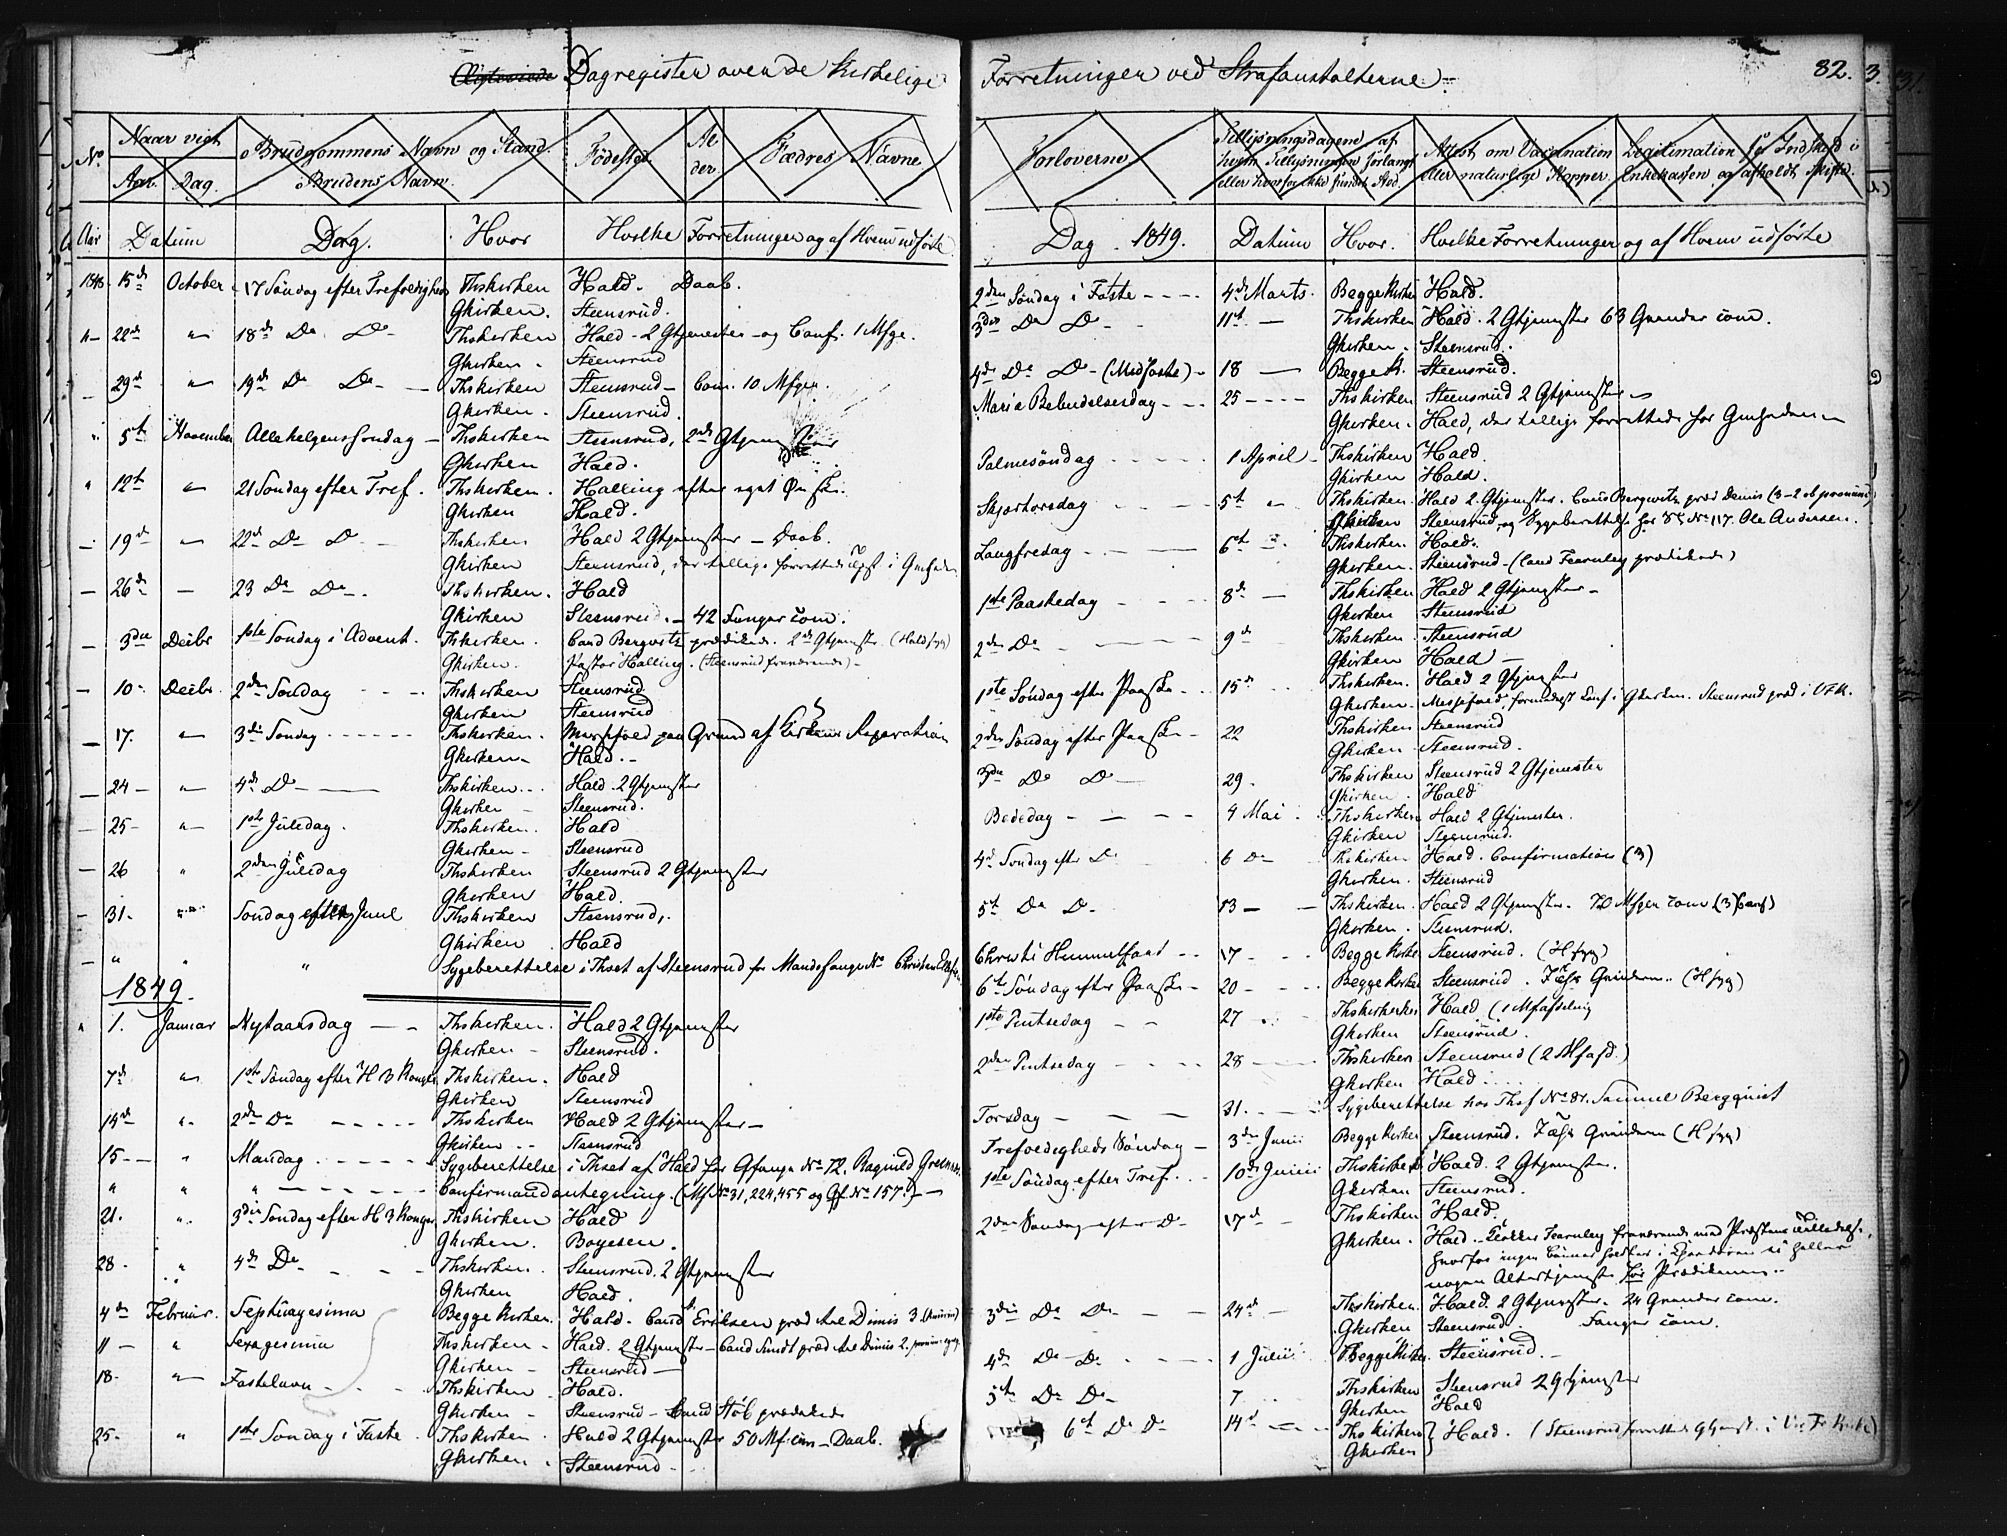 Dagregister over de kirkelige
No Naar viet Brudgommens Navn og Stand. Fødested. Alder Fædres Navne
Aar. Dag. Brudens Navn.
Aar Datum Dag. Hvor Hvilke Forretninger og af Hvem udførte
1848 15de October 17 Søndag efter Trefoldighed Thskirken Hald. Daab.
Gkirken. Steensrud.
22de 18de Do Do Thskirken Hald - 2 Gtjenester og Conf. 1 Mfge.
Gkirken - Steensrud
29de 19de Do Do Thskirken Steensrud - Com. 10 Mfger.
Gkirken - Steensrud.
5te November Allehelgenssondag - Thskirken Steensrud, 2de Gtjenester
Gkirken Hald.
12te 21 Sondag efter Tref. Thskirken. Halling efter eget Ønske.
Gkirken Hald.
19de 22de Do Do Thskirken Hald 2 Gtjenester - Daab.
Gkirken Steensrud, der tillige forrettede i
26de 23 Do Do Thskirken. Hald
Gkirken Steensrud. - 42 Fanger com.
3die Decbr 1ste Søndag i Advent. Thskirken. Cand Bergwitz prædikede. 2de Gtjenester (Hald syg)
Gkirken. Pastor Halling. (Steensrud fraværende) -
10 Decbr 2den Søndag Thskirken Steensrud
Gkirken Steensrud
17. 3die Søndag Thskirken. Messefald paa Grund af Kirkens Reparation
Gkirken Hald. -
24 4de Do Thskirken Hald. 2 Gtjenester
Gkirken - Steensrud.
25 1ste Juledag. Thskirken. Hald
Gkirken - Steensrud
26 2den Juledag Thskirken Steensrud 2 Gtjenester
Gkirken Hald.
31. Søndag efter Juul Thskirken Steensrud.
Gkirken Hald
Sygeberettelse i Thset af Steensrud for Mandsfange No Christian
1849.
1. Januar Nytaarsdag Thskirken. Hald 2 Gtjenester
Gkirken - Steensrud.
7de 1ste Søndag efter H 3 Konger Thskirken. Hald
Gkirken Steensrud
14de 2den Do Thskirken Hald 2 Gtjenester -
Gkirken Steensrud
15 Mandag Sygeberettelse i Thset af Hald for Gfange No 72. Ragnild
Confirmandantegning. (Mf No 31, 224, 455 og Gf. No 157.) -
21. 3die Søndag efter H 3 Konger Thskirken Hald
Gkirken. Boyesen.
28. 4de Do Thskirken. Steensrud. 2 Gtjenester
Gkirken Hald.
4de Februar. Septuagesima Begge Kirker. Hald. Cand Eriksen præd
11 Sexagesima Thskirken - Hald. 2 Gtjenester - Cand Sundt præd
Gkirken - Steensrud -
18. Fastelavn Thskirken Hald.
Gkirken - Steensrud - Cand Støb prædikede
25. 1ste Søndag i Faste Thskirken. Hald 2 Gtjenester 50 Mf: com - Daab.
Gkirken. Steensrud -
Forretninger ved Strafanstalterne. 82.
Forloverne Tillysningsdagene af hvem Tillysningen forlangt eller hvorfor ikke fundet Sted. Attest om Vaccination eller naturlige Kopper. Legitimation for Indskud i Enkekassen og afholdt Skifte.
Dag. 1849. Datum Hvor. Hvilke Forretninger og af Hvem udførte
2den Søndag i Faste 4de Marts. Begge Kirker Hald.
3die Do Do 11te Thskirken Hald. 2 Gtjenester 63 Qvinder com.
Gkirken. Steensrud.
4de Do Do (Midfaste) 18 Begge K. Steensrud.
Mariæ Bebudelsesdag 25 Thskirken Steensrud 2 Gtjenester
Gkirken. Hald, der tillige forrettede for
Palmesøndag 1 April Thskirken Hald
Gkirken Hald.
Skjærtorsdag 5te Thskirken. Hald 2 Gtjenester. Cand Bergwitz præd
Gkirken Steensrud, og Sygeberettelse for No 117. Ole Andersen.
Langfredag 6te Thskirken. Hald.
Gkirken. Steensrud - (Cand Fearnley prædikede)
1ste Paaskedag 8de Thskirken Hald 2 Gtjenester -
Gkirken Steensrud
2den Do 9de Thskirken. Steensrud
Gkirken Hald -
1ste Søndag efter Paaske 15de Thskirken. Hald 2 Gtjenester
Gkirken. Messefald, formedelst i Gkirken. Steensrud præd i
2den Søndag efter Paaske 22 Thskirken Steensrud
Gkirken Steensrud.
3die Do Do 29. Thskirken Steensrud 2 Gtjenester
Gkirken Hald
Bededag 4 Mai Thskirken Hald 2 Gtjenester.
Gkirken Steensrud.
4de Søndag efter Do 6 Do Thskirken. Hald. Confirmation (3)
Gkirken. Steensrud
5te Do Do 13 Thskirken. Hald 2 Gtjenester. 70 Mfger com (3 Conf)
Gkirken. Steensrud.
Christi Himmelfart 17 Begge Kirker Steensrud. (H syg)
6te Søndag efter Paaske 20 Begge Kirker Steensrud. (H syg)
1ste Pintsedag 27 Thskirken Hald (1 Mfafdeling
Gkirken Steensrud.
2den Pintsedag 28 Thskirken Steensrud (2 Mfafd.)
Gkirken Hald.
Torsdag 31. Sygeberettelse hos Thsf No 81. Samuel Bergquist
Trefoldigheds Søndag 3die Juni Begge Kirker Steensrud. (H syg)
1ste Søndag efter Tref. 10de Junii Thskirken Hald. 2 Gtjenester.
Gkirken Steensrud.
2den Søndag efter Do 17de Thskirken Hald.
Gkirken. Hald. Fearnley fraværende med Præstens Tilladelse,
hvorfor ingen Bønner holdtes i ei heller
nogen Altertjeneste før Prædikenen.
3die Do Do 24de Thskirken. Hald. 2 Gtjenester. 24 Qvinder com.
Gkirken Steensrud. Fanger com.
4de Do Do 1 Julii Begge Kirker. Steensrud. -
5te Do Do 7 Thskirken Steensrud 2 Gtjenester
Gkirken Hald
6te Do Do 14de Thskirken } Hald. (Steensrud forrettede Gtjenst. i Kirke)
Gkirken